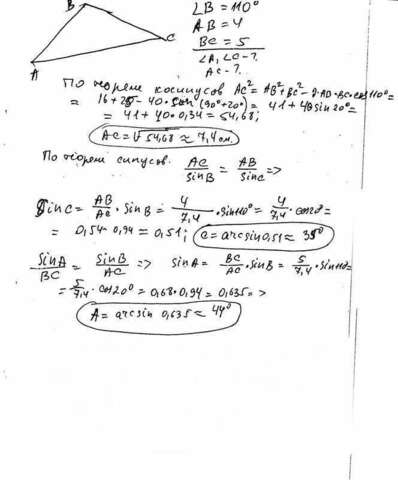 B
C
A
∠B = 110°
AB = 4
BC = 5
∠A, ∠C - ?.
AC - ?.
По теореме косинусов AC² = AB² + BC² - 2·AB·BC·cos110° =
= 16 + 25 - 40·cos(90°+20°) = 41 + 40 sin 20° =
= 41 + 40·0,34 = 54,68;
AC = √54,68 ≈ 7,4 см.
По теореме синусов. AC/sinB = AB/sinC =>
SinC = AB/AC · sinB = 4/7,4 · sin110° = 4/7,4 · cos20° =
= 0,54·0,94 = 0,51; C = arcsin0,51 ≈ 35°
SinA/BC = SinB/AC => sinA = BC/AC · sinB = 5/7,4 · sin110 =
= 5/7,4 · cos20° = 0,68·0,94 = 0,635 = >
A = arcsin 0,635 ≈ 44°